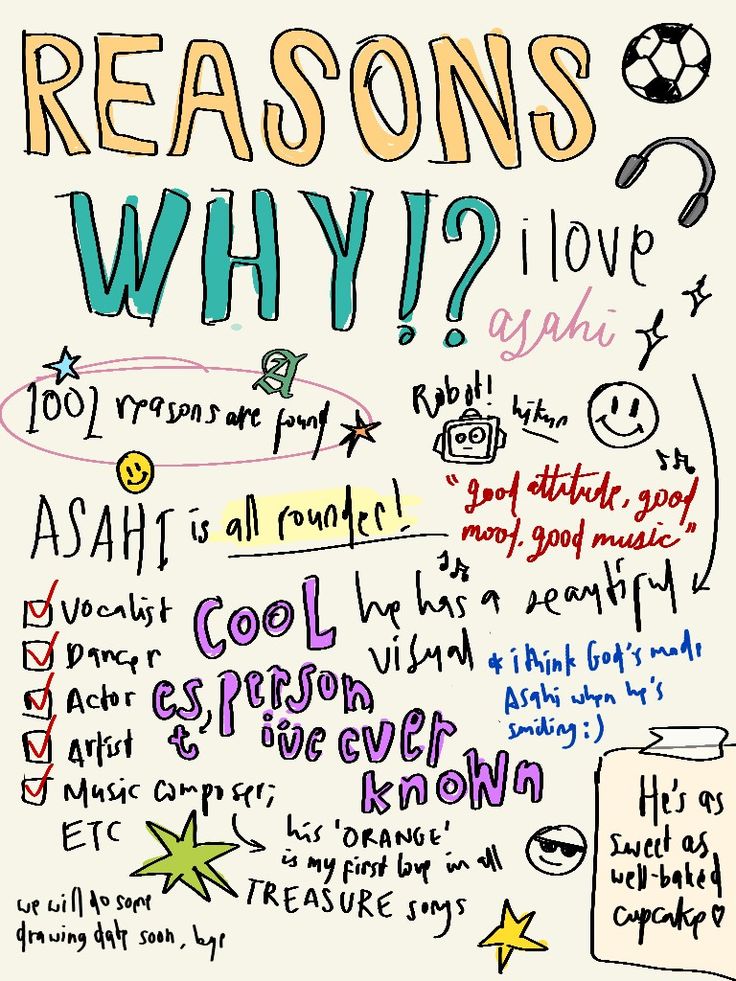 REASONS
WHY!? i love
asahi
A
1001 reasons are found
Robot!
ASAHI is all rounder!
"good attitude, good
mood, good music"
Vocalist
Dancer
Actor
Artist
Music composer;
ETC
COOL
es,
t
person
i've ever
known
he has a beautiful
visual
* i think God's made
Asahi when he's
smiling :)
his 'ORANGE'
is my first love in all
TREASURE songs
He's as
sweet as
well-baked
cupcake ♡
we will do some
drawing date soon, bye